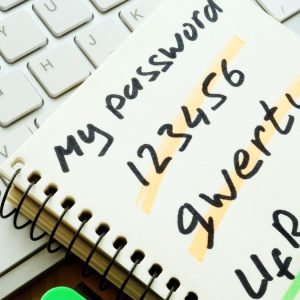 My password
123456
qwerty